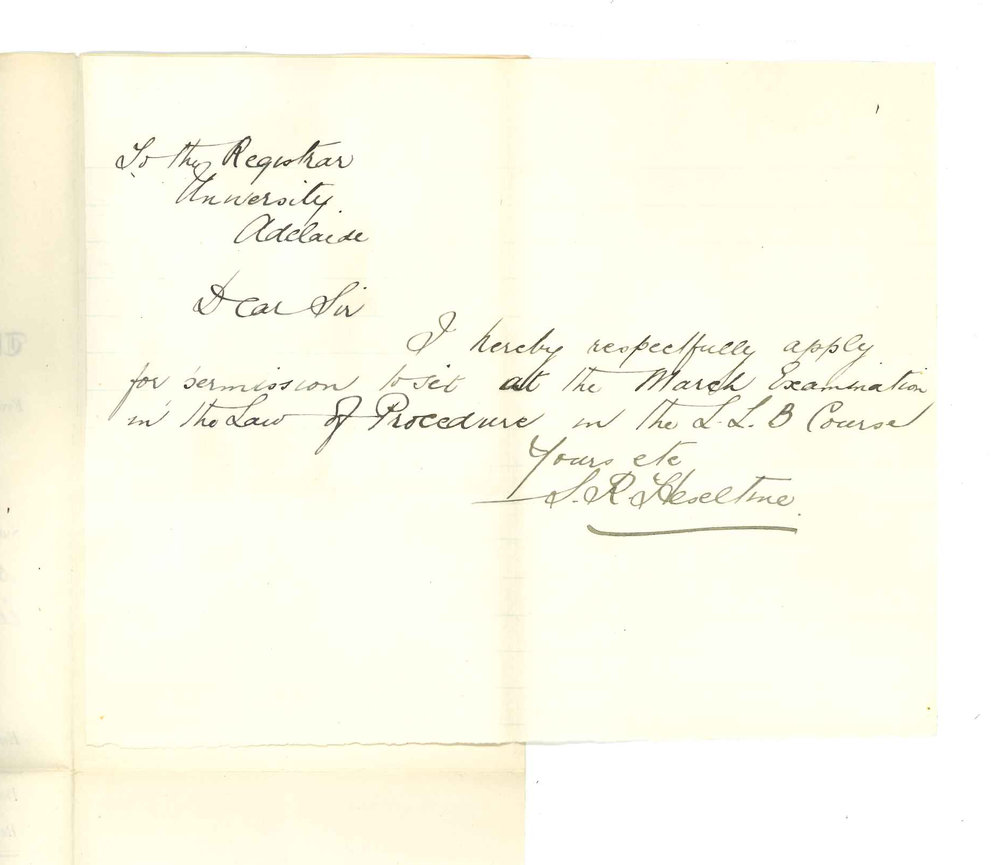 To the Registrar
University
Adelaide
Dear Sir
I hereby respectfully apply
for permission to sit at the March Examination
in the Law of Procedure in the L.L.B Course
Yours etc
S. R. Heseltine.